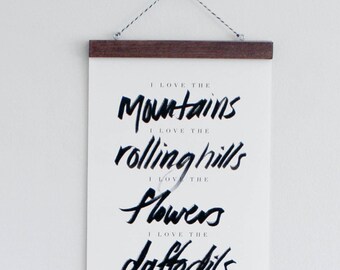 I LOVE THE
mountains
I LOVE THE
rolling hills
I LOVE THE
flowers
I LOVE THE
daffodils